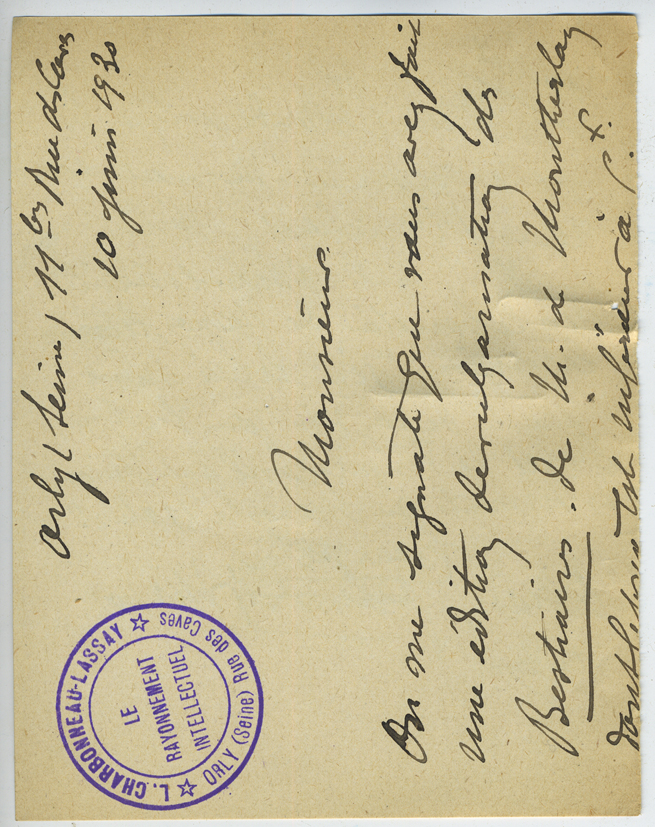 L. CHARBONNEAU-LASSAY
LE
RAYONNEMENT
INTELLECTUEL
ORLY (Seine) Rue des Caves
Orly (Seine) 11 bis Rue des Caves
10 Juin 1930
Monsieur
On me signale que vous avez fait
une édition de vulgarisation des
Bestiaires. de M. de Montherlant
dont le prix est inférieur à